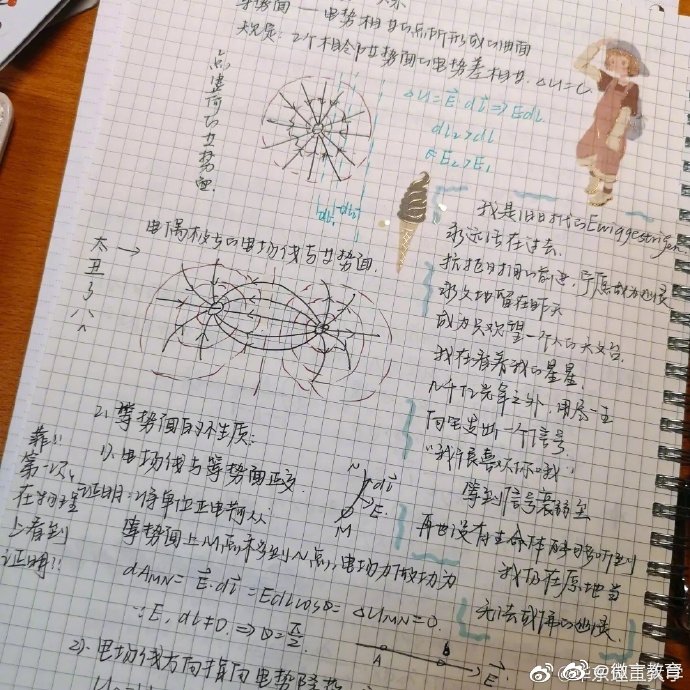 等势面 — 电势相等的点所形成的曲面
规定: 2个相邻等势面的电势差相等. ΔU=C
点电荷的等势面.
ΔU=E⃗·dl⃗ ⇒ Edl.
dl₂>dl
E₂>E₁
dl₁ dl₂
电偶极子的电场线与等势面.
太丑了八
2). 等势面的性质:
1). 电场线与等势面正交.
证明: 将单位正电荷从
等势面上M点移到N点, 电场力做功为
dA_MN = E⃗·dl⃗ = Edlcosθ = ΔU_MN = 0.
∵ E, dl≠0. ⇒ θ=π/2
2). 电场线方向指向电势降
靠!!
第一次
在物理
上看到
证明!!
N
dl⃗
E
M
A
B
E⃗
我是旧时代的Ewiggestrigen
永远活在过去.
抗拒时间的前进, 宁愿成为
永久地留在昨天
成为只观望一个人的天文台.
我在看着我的星星
几个亿光年之外, 用尽一生
向它发出一个信号
“我很喜欢你哦”
等到信号衰弱至
再也没有生命体能够听到
我仍在原地当
无法成佛的幽灵.
@微言教育